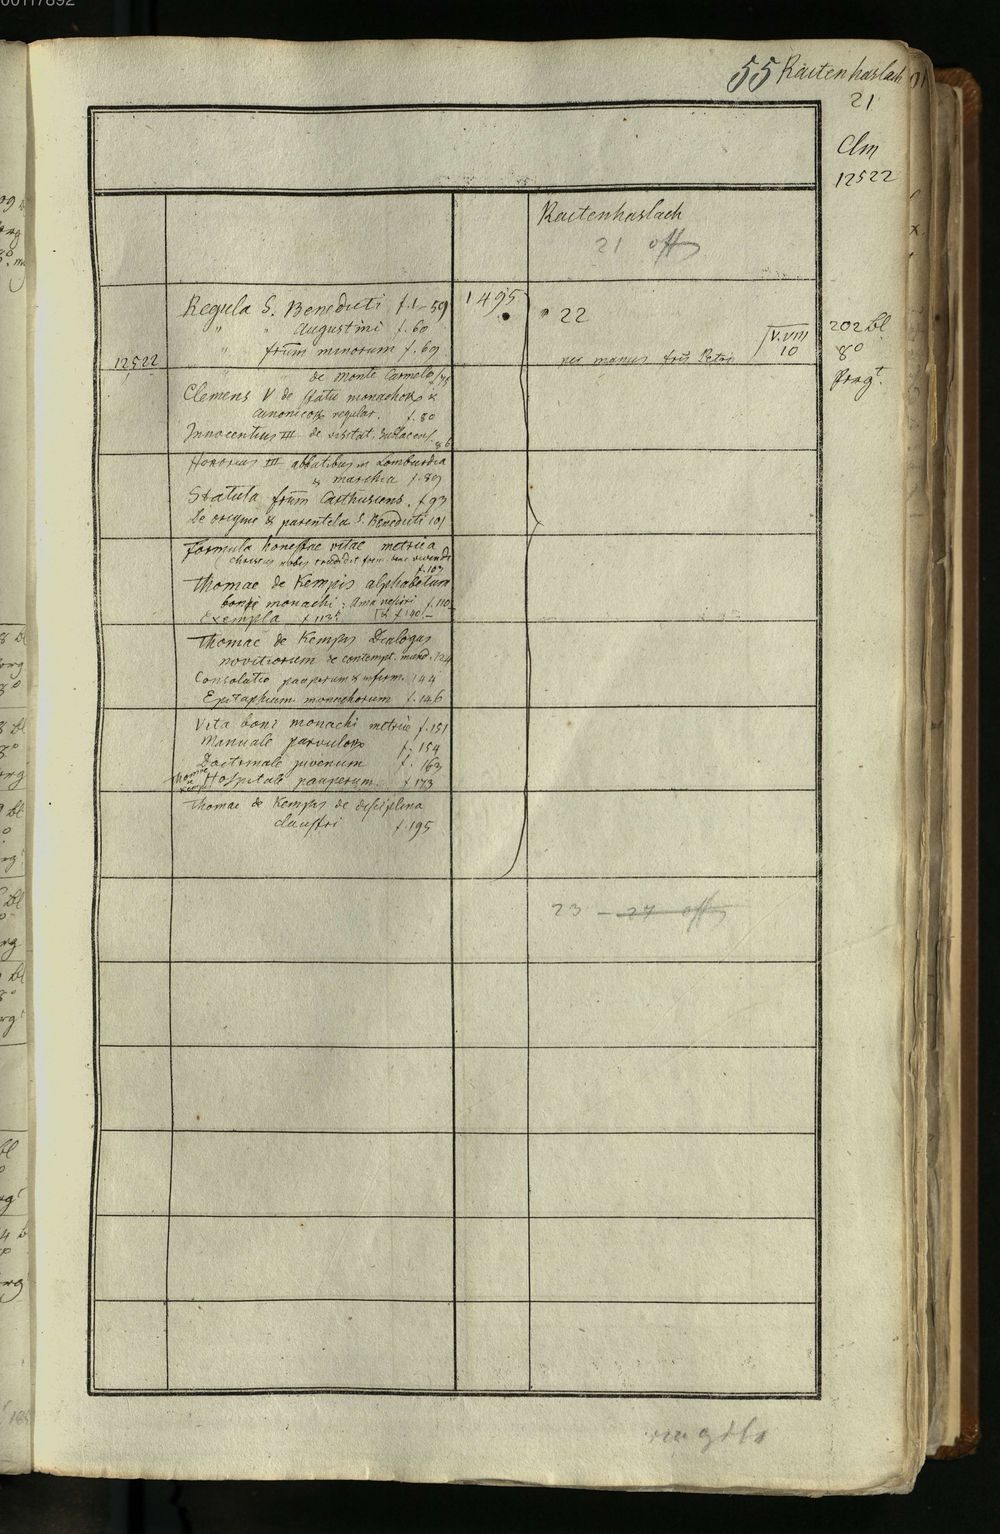 00117892
55 Raitenhaslach
21
Clm
12522
Raitenhaslach
21 off
Regula S. Benedicti f. 1-59
" " Augustini f. 60
" frūm minorum f. 69
12522
" de monte Carmelo f. 75
Clemens V de statu monachoꝝ &
canonicoꝝ regular. f. 80
Innocentius III de visitat. Sublacens f. 86
Honorius III abbatibus in Lombardia
& marchia f. 89
Statuta frūm Carthusiens. f. 93
De origine & parentela S. Benedicti 101
Formula honestae vitae metrica
f. 103
Thomae de Kempis alphabetum
boni monachi: Ama nesciri f. 110
Exempla f. 113 & f. 140
Thomae de Kempis Dialogus
novitiorum de contempt. mund. 124
Consolatio pauperum & infirm. 144
Epitaphium monachorum f. 146
Vita boni monachi metrice f. 151
Manuale parvuloꝝ f. 154
Doctrinale juvenum f. 163
Thomae de Kempis Hospitale pauperum f. 173
Thomae de Kempis de disciplina
claustri f. 195
1495
22
per manus fr̄is Petri
V. VIII
10
202 Bl
8°
Prgt.
23 - 27 off